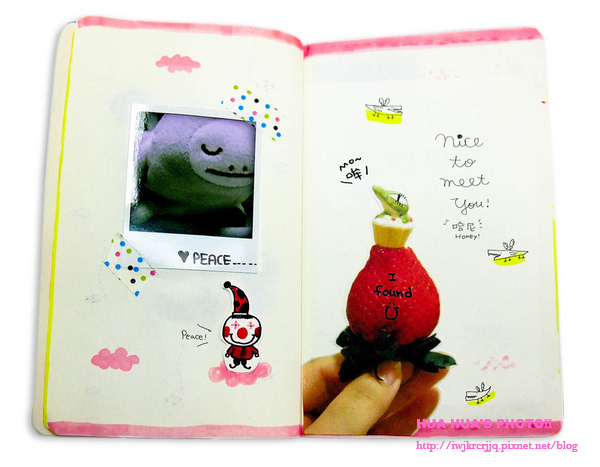 ♥ PEACE_ _ _ _ _
Peace!
Mo~
nice
to
meet
you!
哈尼
Honey!
I
found
HUA HUA'S PHOTO!!
http://iwjkrcrjjq.pixnet.net/blog